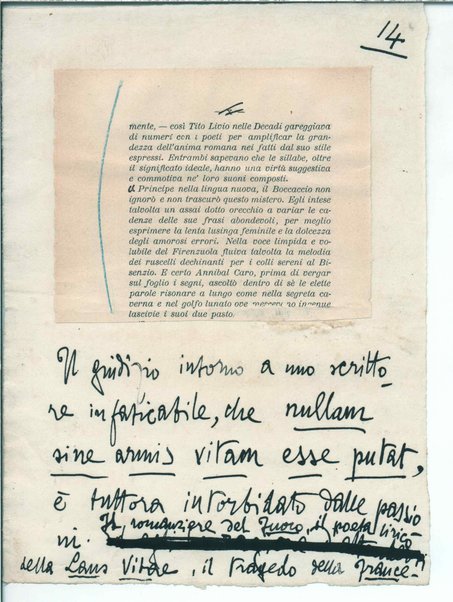 14
mente, — così Tito Livio nelle Decadi gareggiava
di numeri con i poeti per amplificar la gran-
dezza dell'anima romana nei fatti dal suo stile
espressi. Entrambi sapevano che le sillabe, oltre
il significato ideale, hanno una virtù suggestiva
e commotiva ne' loro suoni composti.
Principe nella lingua nuova, il Boccaccio non
ignorò e non trascurò questo mistero. Egli intese
talvolta un assai dotto orecchio a variar le ca-
denze delle sue frasi abondevoli, per meglio
esprimere la lenta lusinga feminile e la dolcezza
degli amorosi errori. Nella voce limpida e vo-
lubile del Firenzuola fluiva talvolta la melodia
dei ruscelli declinanti per i colli sereni al Bi-
senzio. E certo Annibal Caro, prima di vergar
sul foglio i segni, ascoltò dentro di sè le elette
parole risonare a lungo come nella segreta ca-
verna e nel golfo lunato ove ingenue
lascivie i suoi due pasto
Il giudizio intorno a uno scritto-
re infaticabile, che nullam
sine armis vitam esse putat,
è tuttora intorbidato dalle passio
ni. Il romanziere del Fuoco, il poeta lirico
della Laus Vitae, il tragedo della France-